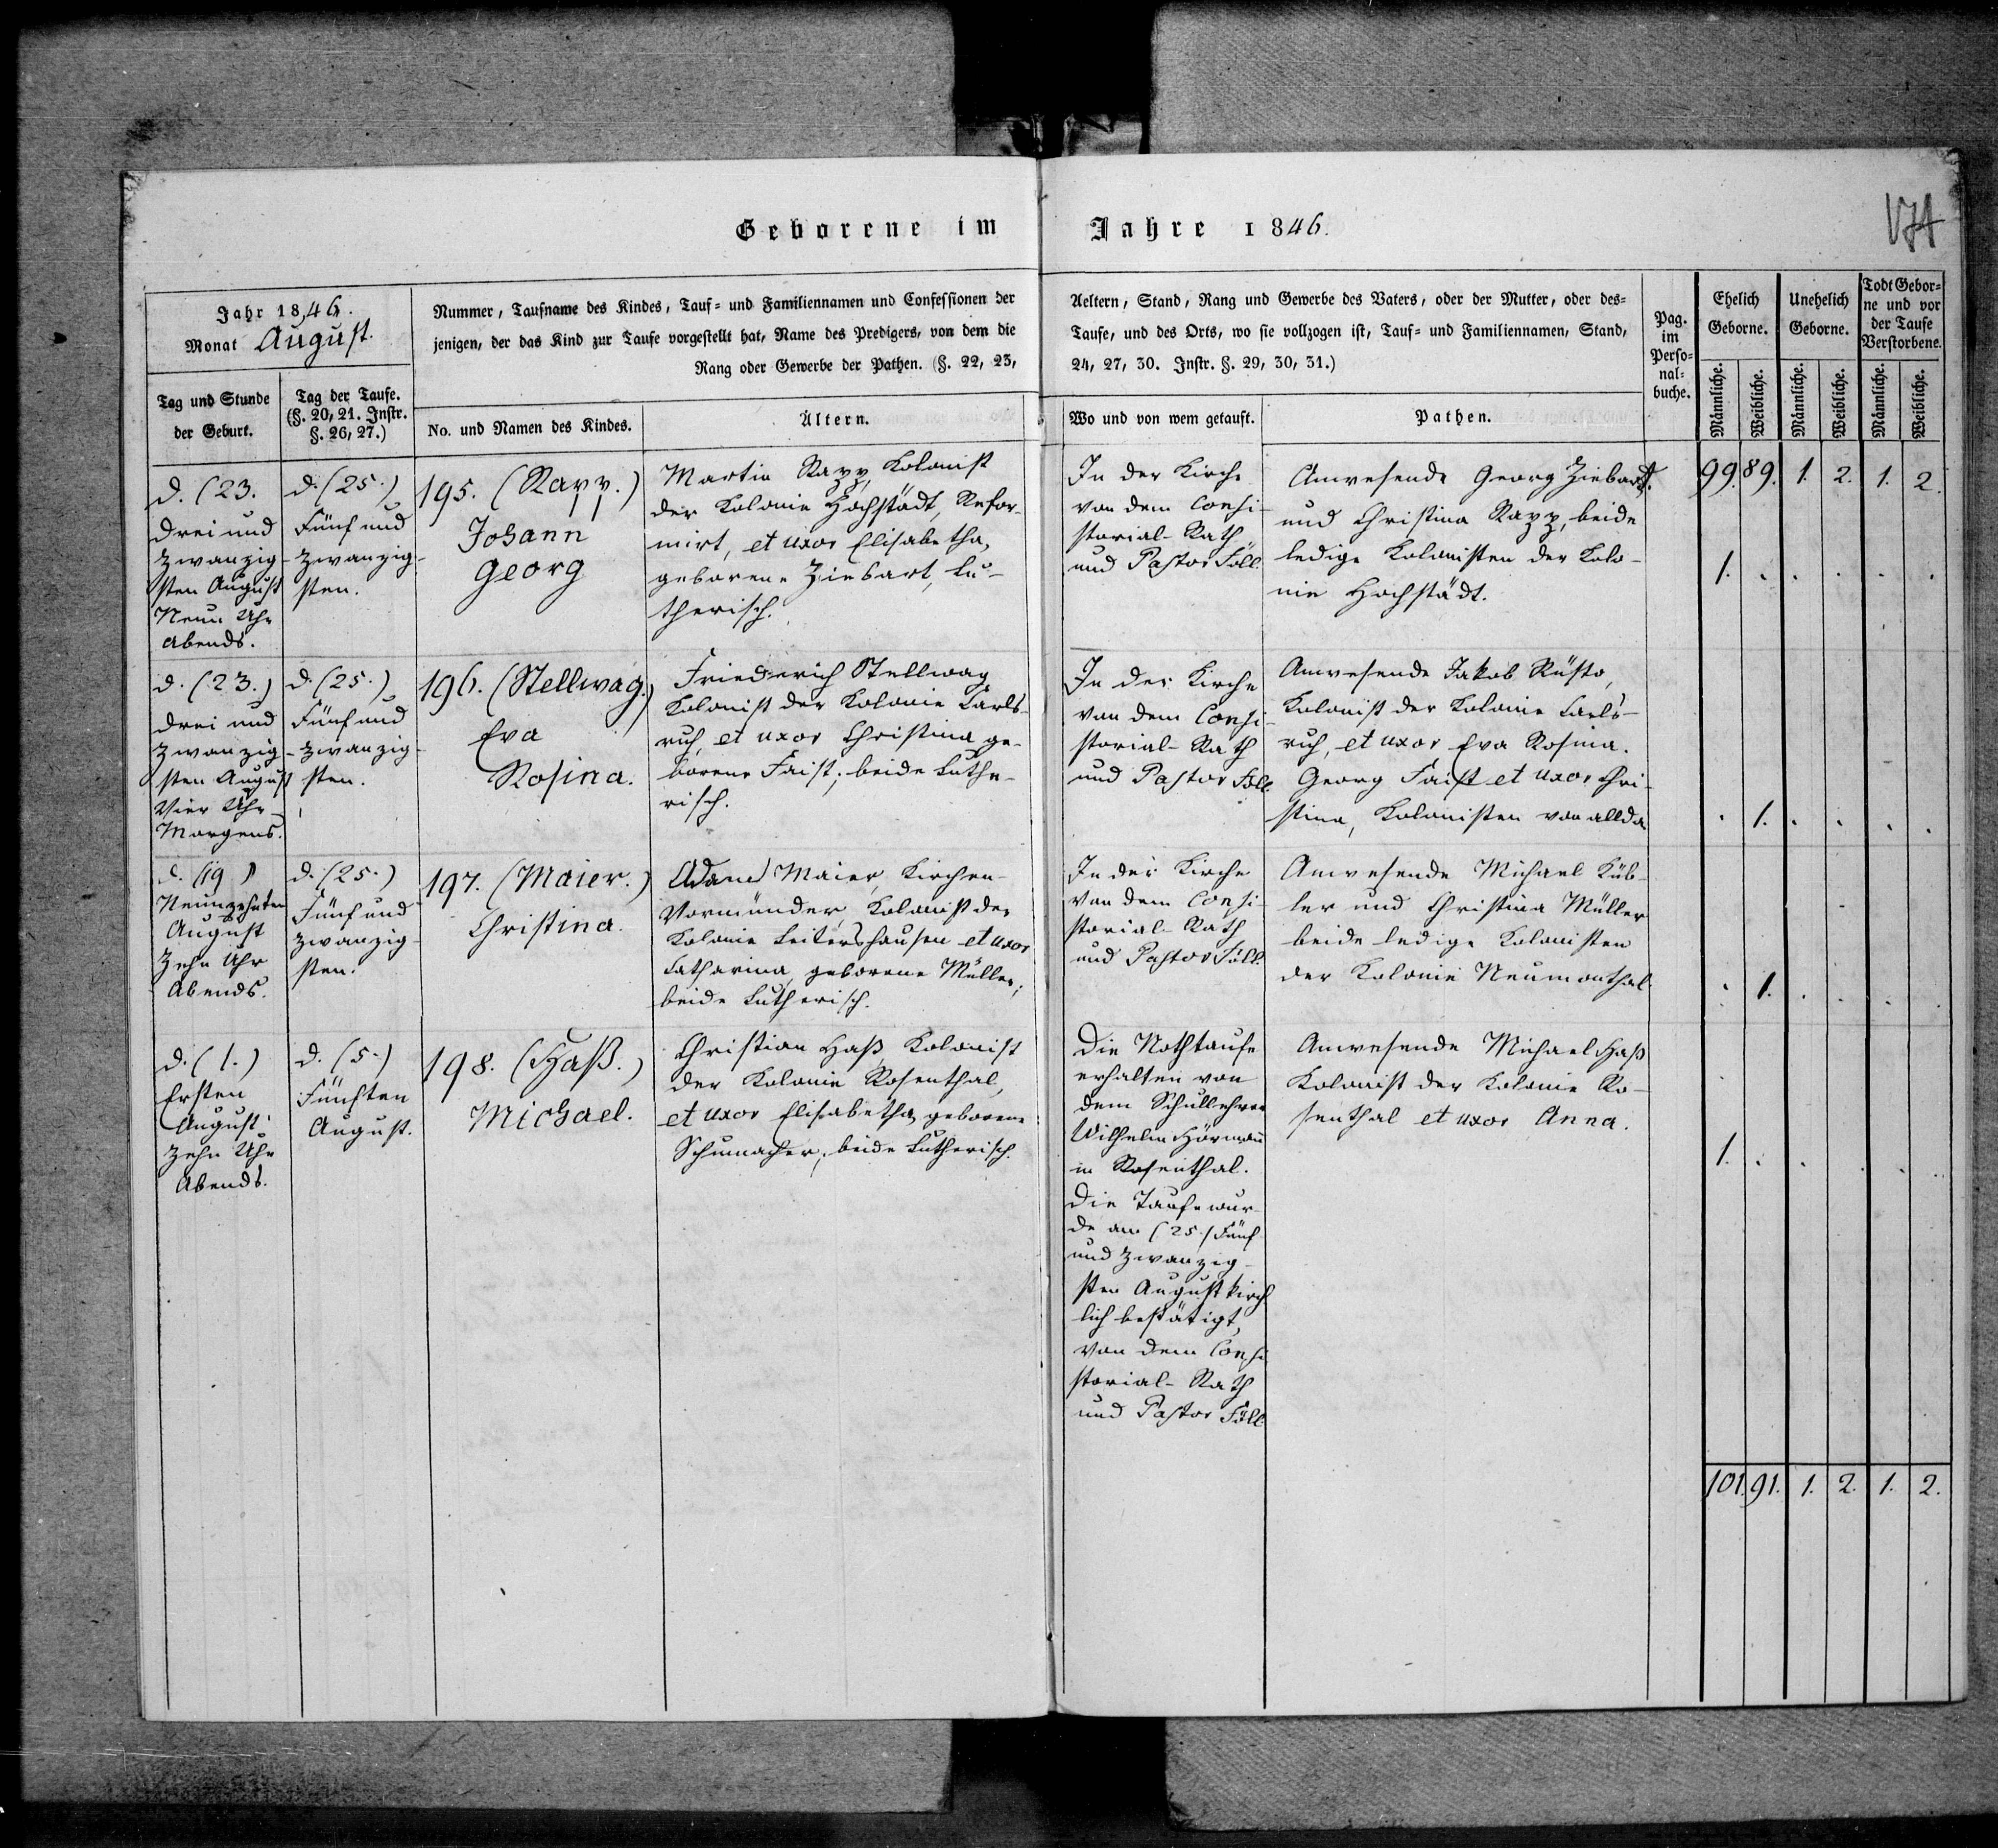 Geborene im Jahre 1846.
Jahr 1846.
Monat August.
Nummer, Taufname des Kindes, Tauf- und Familiennamen und Confessionen der
jenigen, der das Kind zur Taufe vorgestellt hat, Name des Predigers, von dem die
Rang oder Gewerbe der Pathen. (§. 22, 23,
Aeltern, Stand, Rang und Gewerbe des Vaters, oder der Mutter, oder des-
Taufe, und des Orts, wo sie vollzogen ist, Tauf- und Familiennamen, Stand,
24, 27, 30. Instr. §. 29, 30, 31.)
Pag.
im
Perso-
nal-
buche.
Ehelich
Geborne.
Unehelich
Geborne.
Todt Gebor-
ne und vor
der Taufe
Verstorbene.
Tag und Stunde
der Geburt.
Tag der Taufe.
(§. 20, 21. Instr.
§. 26, 27.)
No. und Namen des Kindes.
Ältern.
Wo und von wem getauft.
Pathen.
Männliche.
Weibliche.
Männliche.
Weibliche.
Männliche.
Weibliche.
99. 89. 1. 2. 1. 2.
d. (23.
Drei und
zwanzig-
sten August
Neun Uhr
Abends.
d. (25.)
Fünf und
zwanzig-
sten.
195. (Rapp.)
Johann
Georg
Martin Rapp, Kolonist
der Kolonie Hochstädt, Refor-
mirt, et uxor Elisabetha,
geborene Ziebart, Lu-
therisch.
In der Kirche
von dem Consi-
storial-Rath
und Pastor Föll.
Anwesende Georg Ziebart.
und Christina Rapp, beide
ledige Kolonisten der Kolo-
nie Hochstädt.
1. . . . . .
d. (23.)
Drei und
zwanzig-
sten August
Vier Uhr
Morgens.
d. (25.)
Fünf und
zwanzig-
sten.
196. (Stellwag.)
Eva
Rosina.
Friederich Stellwag
Kolonist der Kolonie Carls-
ruh, et uxor Christina ge-
borene Faist; beide Luthe-
risch.
In der Kirche
von dem Consi-
storial-Rath
und Pastor Föll.
Anwesende Jakob Rüsto,
Kolonist der Kolonie Carls-
ruh, et uxor Eva Rosina.
Georg Faist et uxor Chri-
stina, Kolonisten von allda
. 1. . . . .
d. (19)
Neunzehnten
August
Zehn Uhr
Abends.
d. (25.)
Fünf und
zwanzig
sten.
197. (Maier.)
Christina.
Adam Maier, Kirchen-
Vormünder, Kolonist der
Kolonie Leitershausen et uxor
Catharina, geborene Müller;
beide Lutherisch.
In der Kirche
von dem Consi-
storial-Rath
und Pastor Föll.
Anwesende Michael Küb-
ler und Christina Müller
beide ledige Kolonisten
der Kolonie Neumonthal.
. 1. . . . .
d. (1.)
Ersten
August
Zehn Uhr
Abends.
d. (5.)
Fünften
August.
198. (Haß.)
Michael.
Christian Haß, Kolonist
der Kolonie Rosenthal,
et uxor Elisabetha, geborene
Schumacher; beide Lutherisch.
Die Nothtaufe
erhalten von
dem Schullehrer
Wilhelm Hörmann
in Rosenthal.
Die Taufe wur-
de am (25.) Fünf
und zwanzig-
sten August kirch
lich bestätigt,
von dem Consi
storial-Rath
und Pastor Föll.
Anwesende Michael Haß
Kolonist der Kolonie Ro-
senthal et uxor Anna.
1. . . . . .
101. 91. 1. 2. 1. 2.